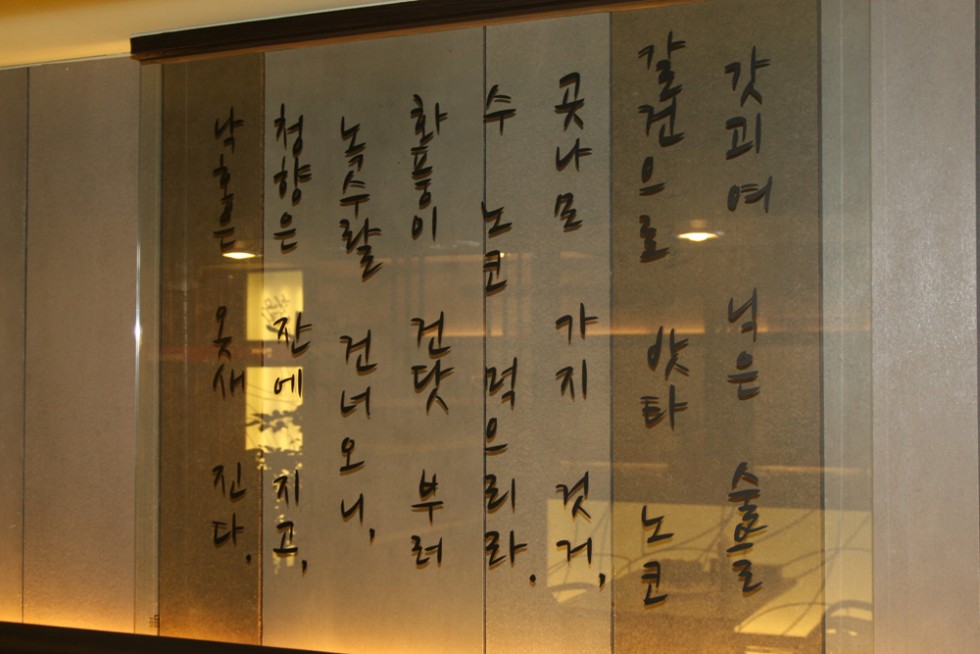 갓괴여 닉은 술을
갈건으로 밧타 노코
곳나모 가지 것거,
수 노코 먹으리라.
화풍이 건닷 부러
녹수랄 건너오니,
청향은 잔에 지고,
낙홍은 옷새 진다.